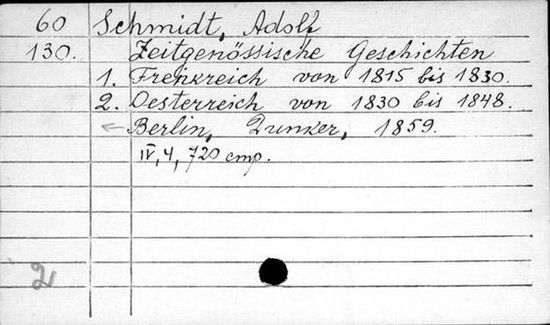 60 Schmidt, Adolf
130. Zeitgenössische Geschichten
1. Frenkreich von 1815 bis 1830.
2. Oesterreich von 1830 bis 1848.
← Berlin, Dunker, 1859.
IV, 4, 720 cmp.
2